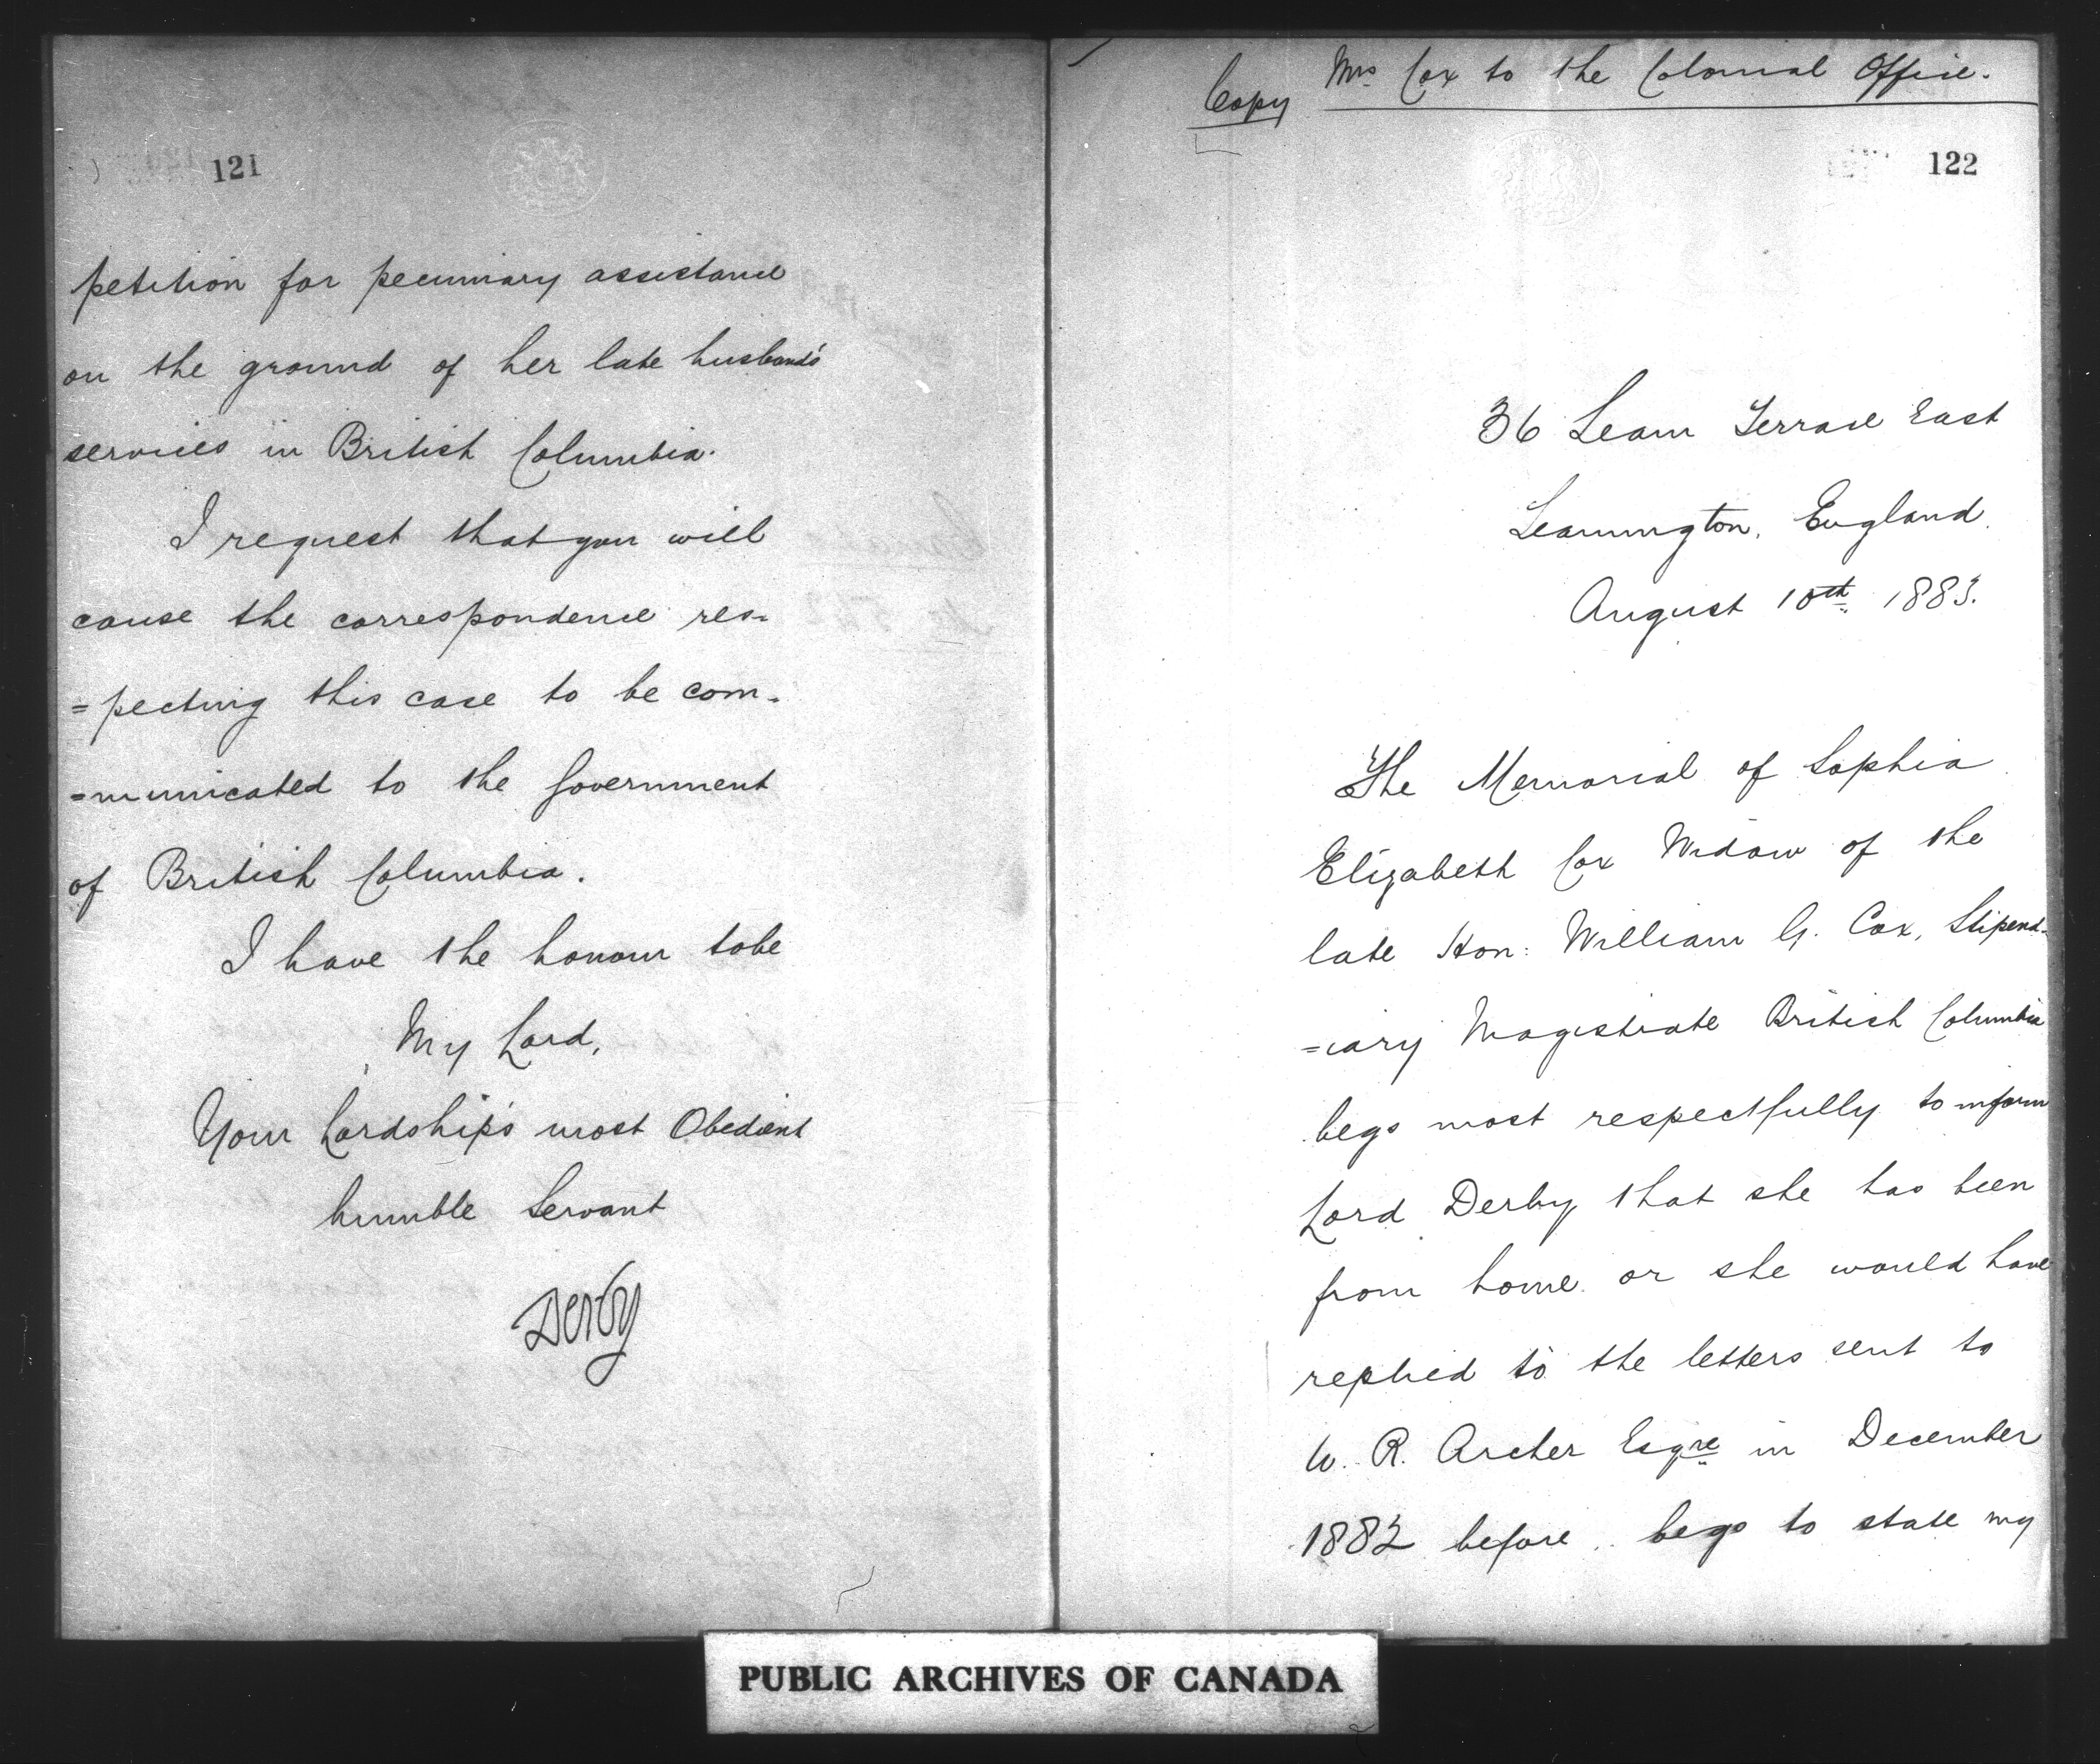 121
petition for pecuniary assistance
on the ground of her late husband's
services in British Columbia.
I request that you will
cause the correspondence res-
=pecting this case to be com-
=municated to the Government
of British Columbia.
I have the honour to be
My Lord,
Your Lordship's most Obedient
humble Servant
Derby
Copy Mrs Cox to the Colonial Office.
122
36 Leam Terrace East
Leamington, England.
August 10th 1883.
The Memorial of Sophia
Elizabeth Cox Widow of the
late Hon: William G. Cox, Stipend-
=iary Magistrate British Columbia
begs most respectfully to inform
Lord Derby that she has been
from home or she would have
replied to the letters sent to
W. R. Archer Esqre in December
1882 before.. begs to state my
PUBLIC ARCHIVES OF CANADA